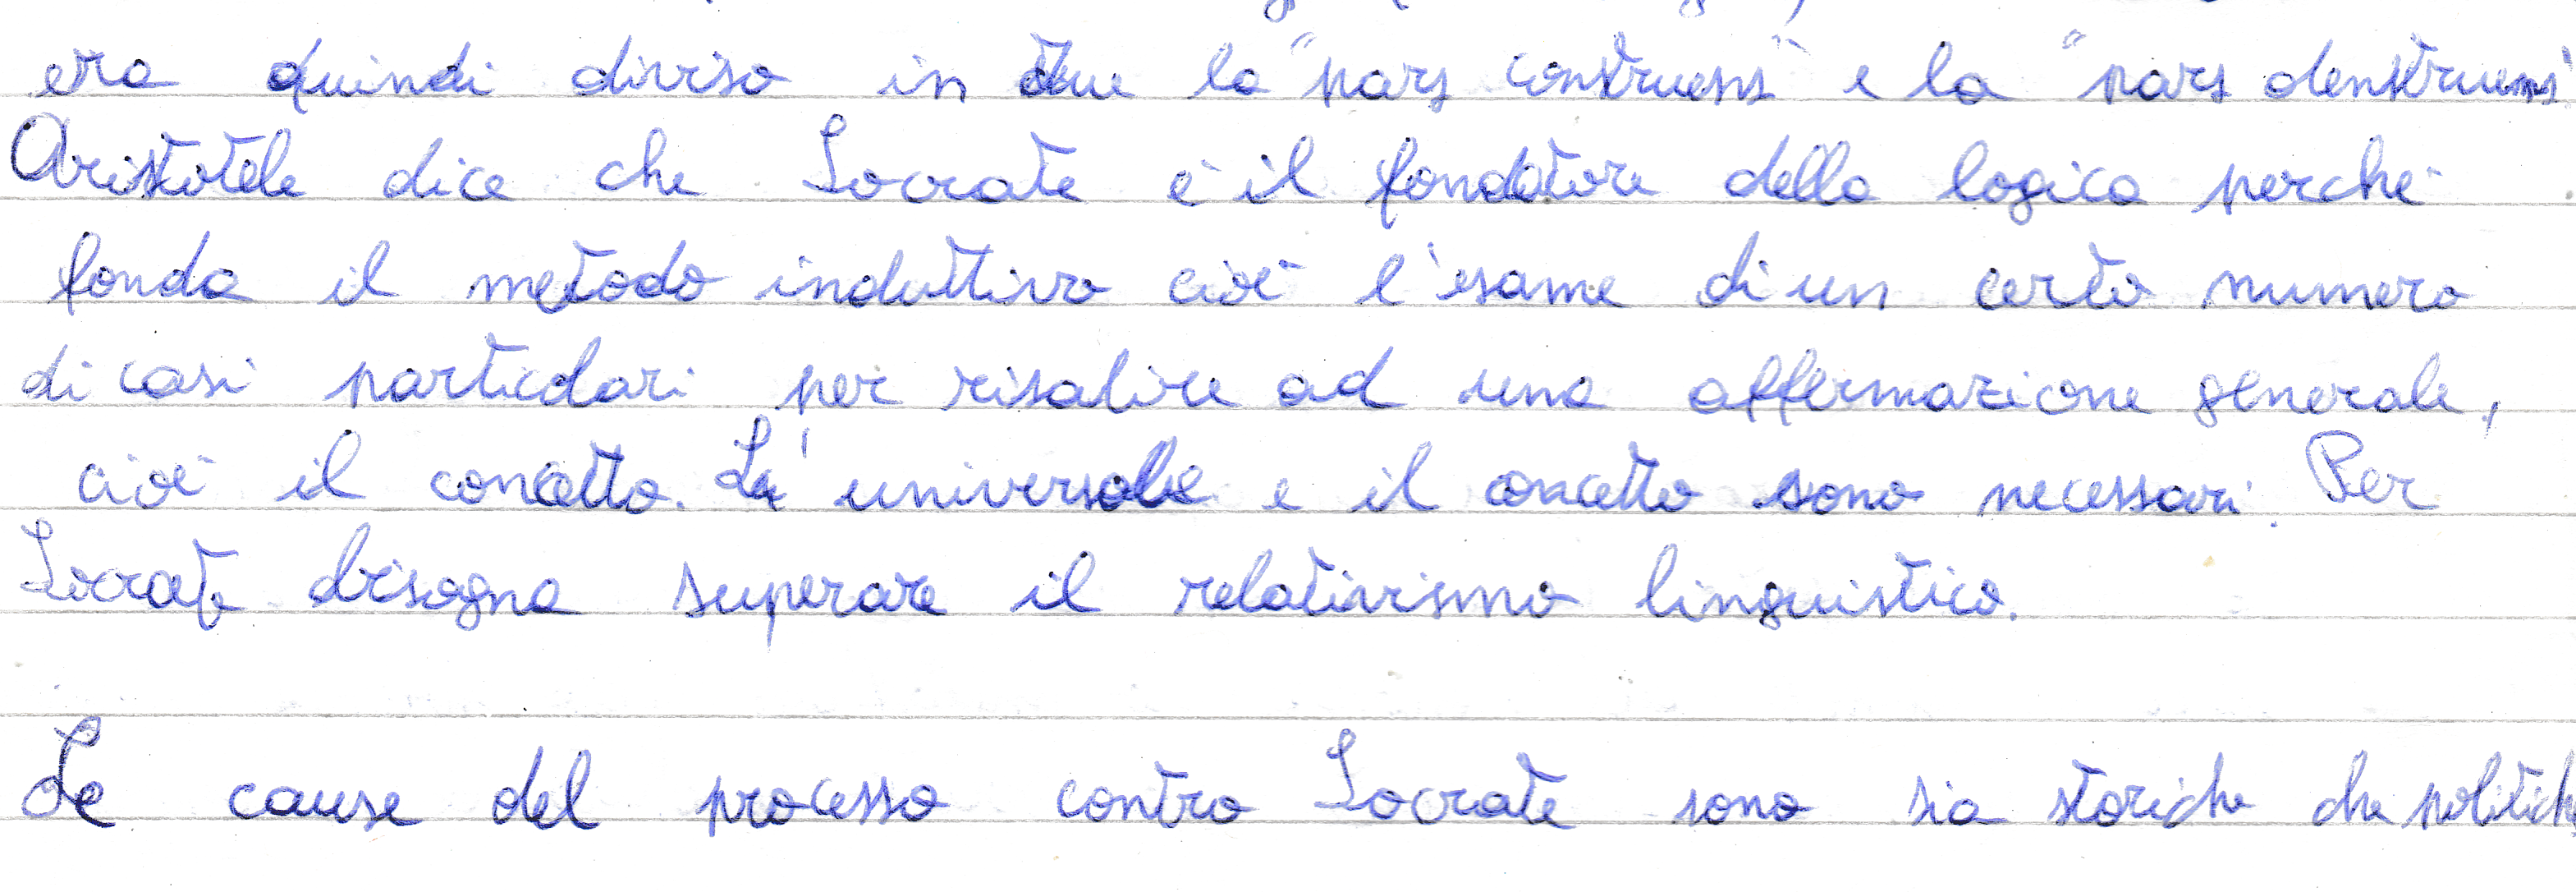 era quindi diviso in due la "pars construens" e la "pars denstruens"
Aristotele dice che Socrate è il fondatore della logica perchè
fonda il metodo induttivo cioè l'esame di un certo numero
di casi particolari per risalire ad una affermazione generale,
cioè il concetto. L'universale e il concetto sono necessari. Per
Socrate bisogna superare il relativismo linguistico.
Le cause del processo contro Socrate sono sia storiche che politiche